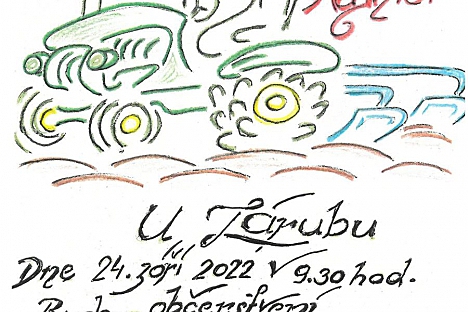 U Zárubu
Dne 24. září 2022 v 9.30 hod.
občerstvení